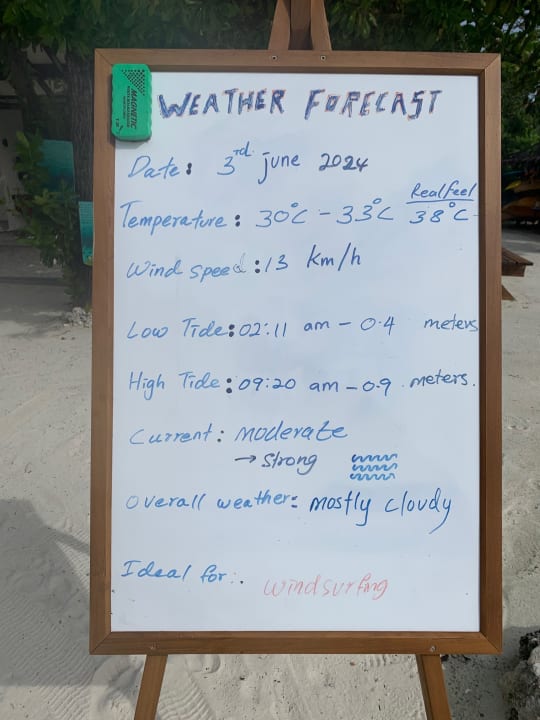 MAGNETIC
WEATHER FORECAST
Date: 3rd. june 2024
Realfeel
Temperature: 30°C - 33°C 38°C
Wind speed: 13 km/h
Low Tide: 02:11 am - 0.4 meters
High Tide: 09:20 am - 0.9 meters.
Current: moderate
→ Strong
Overall weather: mostly cloudy
Ideal for:. windsurfing